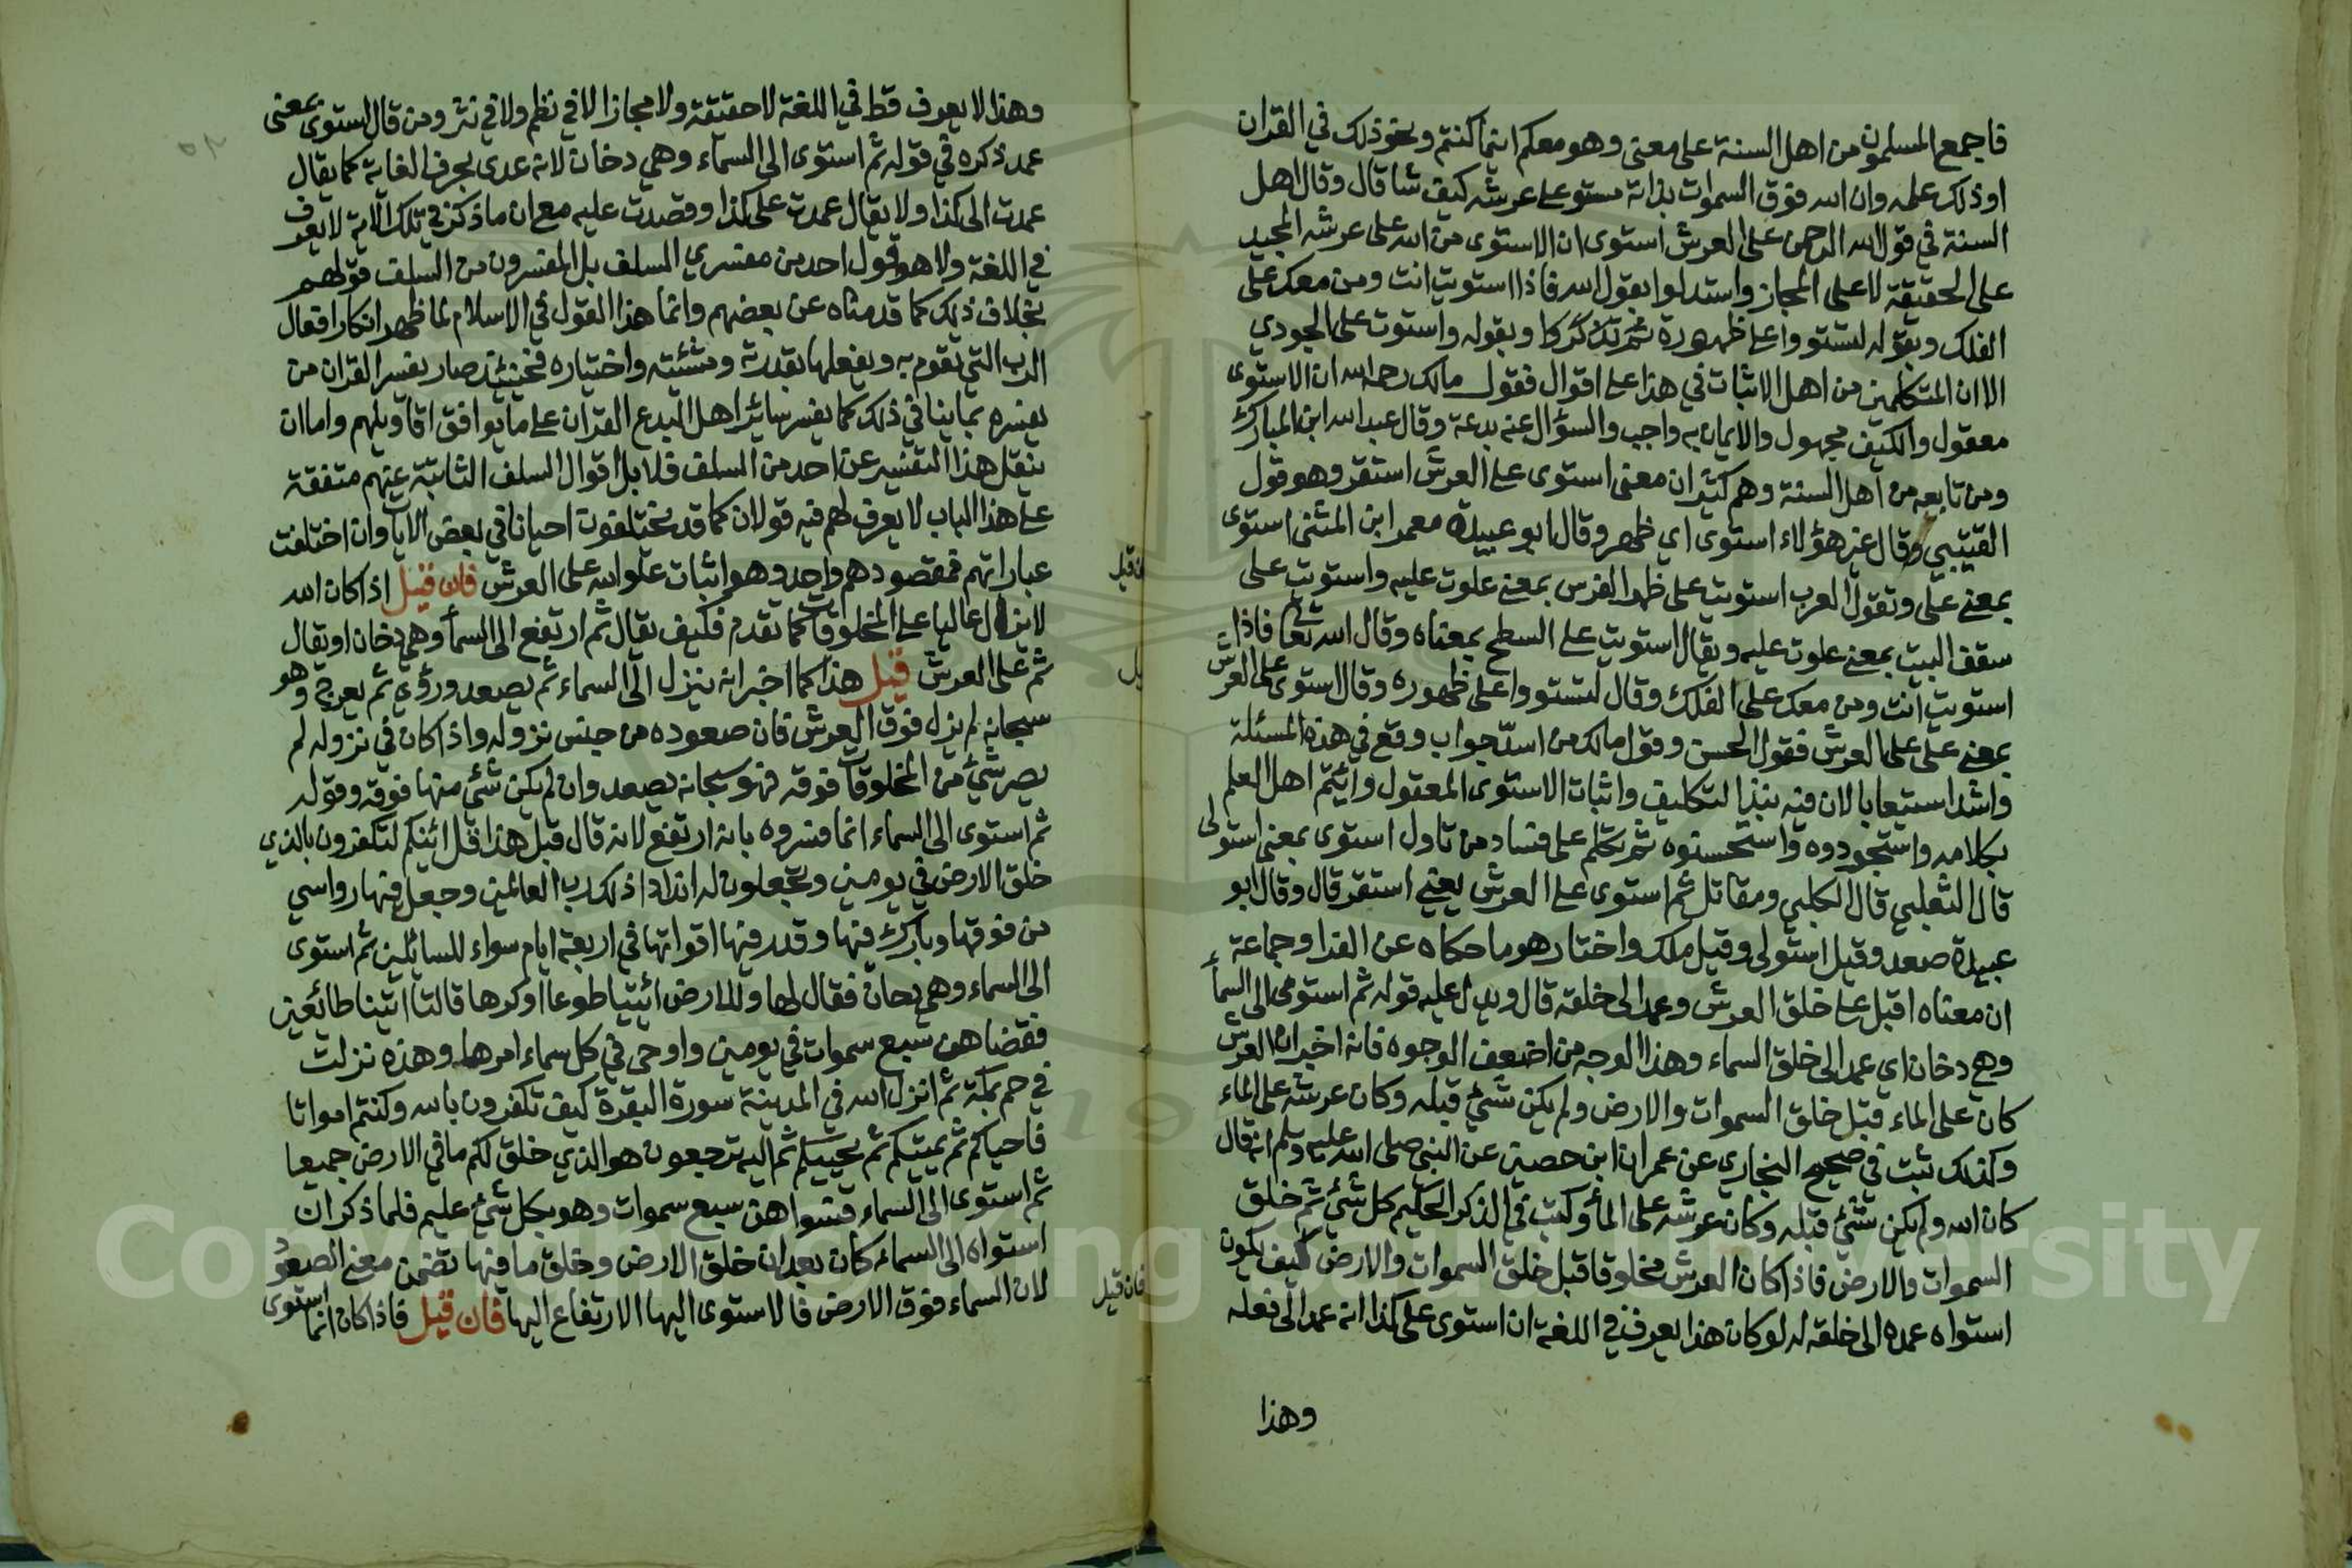 فاجمع المسلمون من اهل السنة على معنى وهو معكم اينما كنتم ونحو ذلك في القران
اوذلك علمه وان الله فوق السموات بذاته مستو على عرشه كيف شا قال وقال اهل
السنة في قول الله الرحمن على العرش استوى ان الاستوى من الله على عرشه المجيد
على الحقيقة لا على المجاز واستدلوا بقول الله فاذا استويت انت ومن معك على
الفلك وبقوله لتستووا على ظهوره وبقوله واستوت على الجودي
الا ان المتكلمين من اهل الاثبات في هذا على اقوال فقول مالك رحمه الله ان الاستوى
معقول والكيف مجهول والايمان به واجب والسؤال عنه بدعة وقال عبد الله ابن المبارك
ومن تابعه من اهل السنة وهم كثير ان معنى استوى على العرش استقر وهو قول
القتيبي وقال غير هؤلاء استوى اي ظهر وقال ابو عبيدة معمر ابن المثنى استوى
بمعنى على وتقول العرب استويت على ظهر الفرس بمعنى علوت عليه واستويت على
سقف البيت بمعنى علوت عليه ويقال استويت على السطح بمعناه وقال الله تعالى فاذا
استويت انت ومن معك على الفلك وقال لتستووا على ظهوره وقال استوى على العرش
بمعنى على على العرش فقول الحسن وقول مالك من اسدّ جواب وقع في هذه المسئلة
واشد استيعابا لان فيه نبذ التكليف واثبات الاستوى المعقول وائتم اهل العلم
بكلامه واستجودوه واستحسنوه ثم تكلم على فساد من تاول استوى بمعنى استولى
قال الثعلبي قال الكلبي ومقاتل ثم استوى على العرش يعني استقر قال وقال ابو
عبيدة صعد وقيل استولى وقيل ملك واختار هو ما حكاه عن الفرا وجماعة
ان معناه اقبل على خلق العرش وعمد الى خلقه قال ويدل عليه قوله ثم استوى الى السماء
وهي دخان اي عمد الى خلق السماء وهذا الوجه من اضعف الوجوه فانه اخبر ان العرش
كان على الماء قبل خلق السموات والارض ولم يكن شئ قبله وكان عرشه على الماء
وكذلك ثبت في صحيح البخاري عن عمران ابن حصين عن النبي صلى الله عليه وسلم انه قال
كان الله ولم يكن شئ قبله وكان عرشه على الماء وكتب في الذكر الحكيم كل شئ ثم خلق
السموات والارض فاذا كان العرش مخلوقا قبل خلق السموات والارض كيف يكون
استواه عمده الى خلقه له لو كان هذا يعرف في اللغة ان استوى على كذا انه عمد الى فعله
وهذا
وهذا لا يعرف قط في اللغة لا حقيقة ولا مجازا لا في نظم ولا في نثر ومن قال استوى بمعنى
عمد ذكره في قوله ثم استوى الى السماء وهي دخان لانه عدى بحرف الغاية كما يقال
عمدت الى كذا ولا يقال عمدت على كذا وقصدت عليه مع ان ما ذكر في تلك الاية لا يعرف
في اللغة ولا هو قول احد من مفسري السلف بل المفسرون من السلف قولهم
بخلاف ذلك كما قدمناه عن بعضهم وانما هذا القول في الاسلام لما ظهر انكار افعال
الرب التي تقوم به ويفعلها بقدرته ومشئته واختياره فحينئذ صار يفسر القران من
يفسره بما ينافي ذلك كما يفسر سائر اهل البدع القران على ما يوافق اقاويلهم واما ان
ينقل هذا التفسير عن احد من السلف فلا بل اقوال السلف الثابتة عنهم متفقة
على هذا الباب لا يعرف لهم فيه قولان كما قد يختلفون احيانا في بعض الايات وان اختلفت
عباراتهم فمقصودهم واحد وهو اثبات علو الله على العرش فان قيل اذا كان الله
لا يزال عاليا على المخلوقات كما تقدم فكيف يقال ثم ارتفع الى السماء وهي دخان او يقال
ثم على العرش قيل هذا كما اخبر انه ينزل الى السماء ثم يصعد وروي ثم يعرج وهو
سبحانه لم يزل فوق العرش فان صعوده من جنس نزوله واذا كان في نزوله لم
يصر شئ من المخلوقات فوقه فهو سبحانه يصعد وان لم يكن شئ منها فوقه وقوله
ثم استوى الى السماء انما فسروه بانه ارتفع لانه قال قبل هذا قل ائنكم لتكفرون بالذي
خلق الارض في يومين وتجعلون له اندادا ذلك رب العالمين وجعل فيها رواسي
من فوقها وبارك فيها وقدر فيها اقواتها في اربعة ايام سواء للسائلين ثم استوى
الى السماء وهي دخان فقال لها وللارض ائتيا طوعا او كرها قالتا اتينا طائعين
فقضاهن سبع سموات في يومين واوحى في كل سماء امرها وهذه نزلت
في حم بمكة ثم انزل الله في المدينة سورة البقرة كيف تكفرون بالله وكنتم امواتا
فاحياكم ثم يميتكم ثم يحييكم ثم اليه ترجعون هو الذي خلق لكم ما في الارض جميعا
ثم استوى الى السماء فسواهن سبع سموات وهو بكل شئ عليم فلما ذكر ان
استواه الى السماء كان بعد ان خلق الارض وخلق ما فيها تضمن معنى الصعود
لان السماء فوق الارض فالاستوى اليها الارتفاع اليها فان قيل فاذا كان انما استوى
فان قيل
Copyright © King Saud University